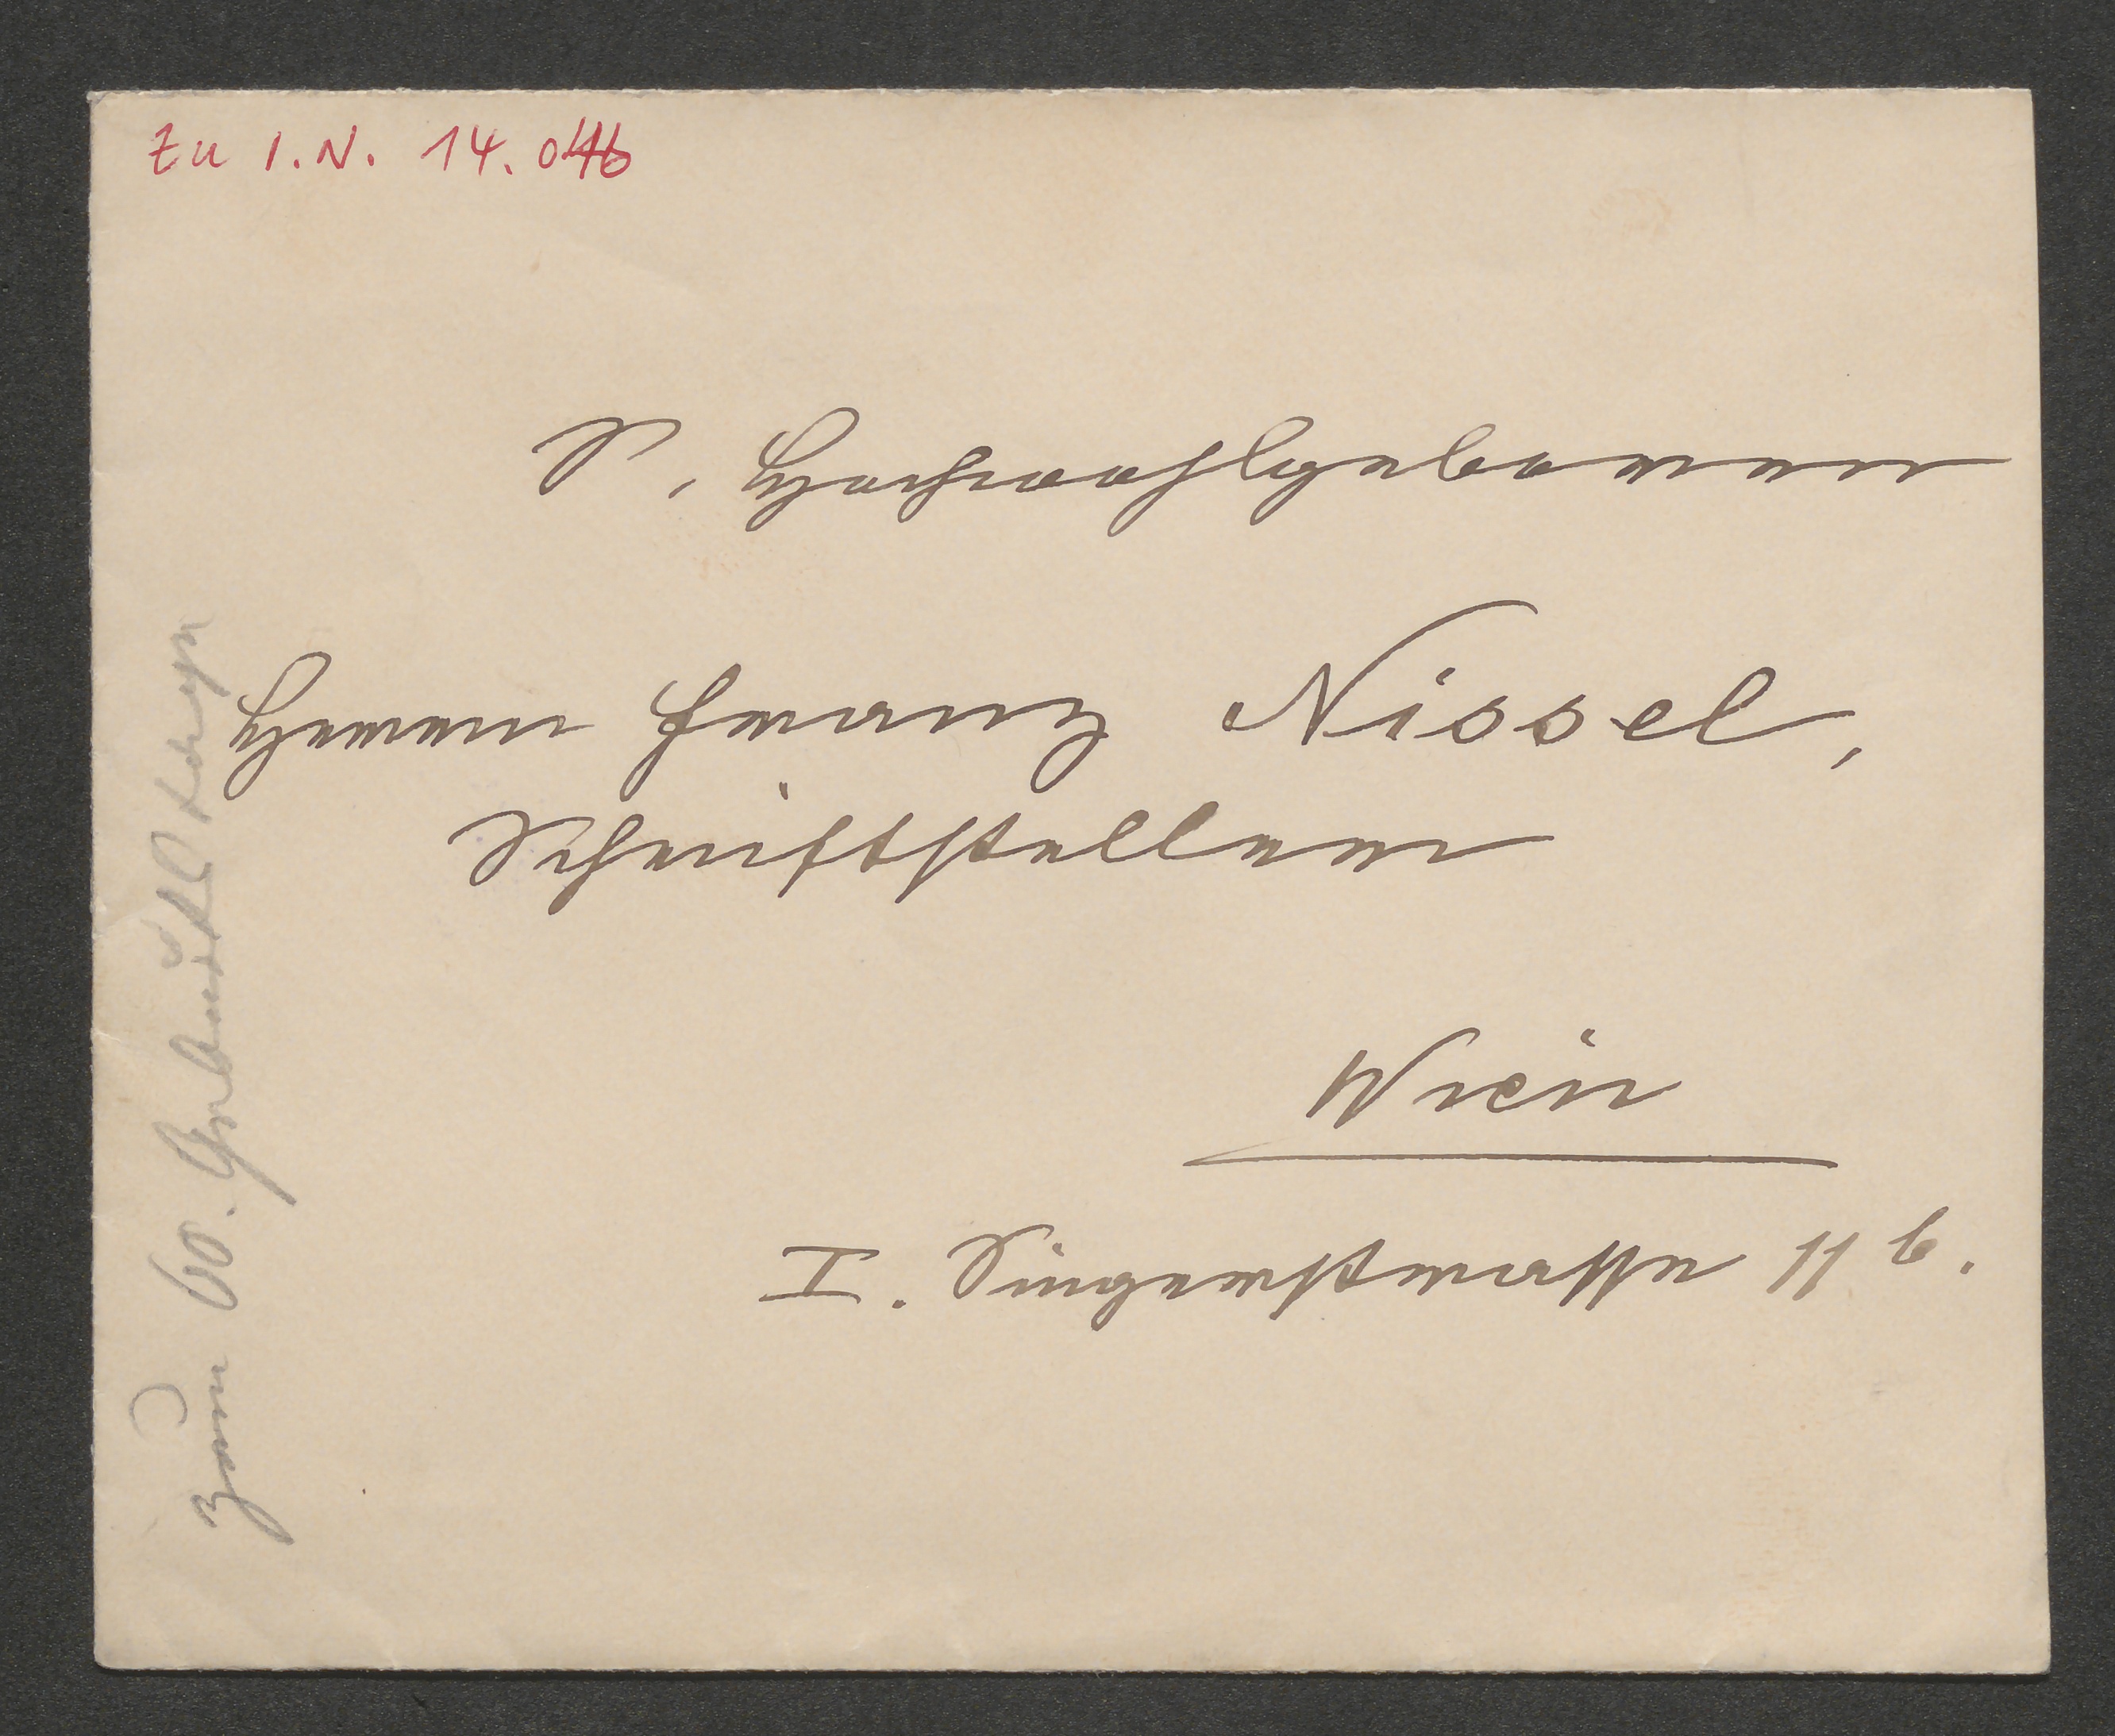 Zu I.N. 14.046
S. Hochwohlgeboren
Herrn Franz Nissel,
Schriftsteller
Wien
I. Singerstrasse 11 b.
zum 60. Geburtstag